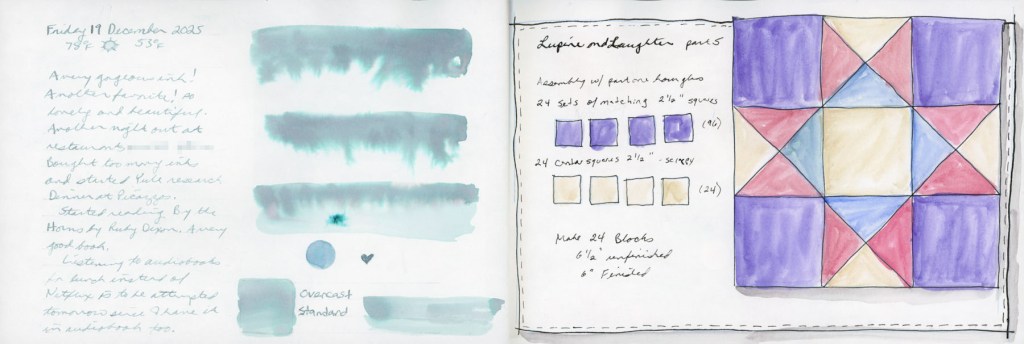 Friday 19 December 2025
75°F 53°F
A very gorgeous ink!
Another favorite! So
lovely and beautiful.
Another night out at
restaurant
Bought too many inks
and started Yule research
Dinner at Picazzo's.
Started reading By the
Horns by Ruby Dixon. A very
good book.
Listening to audiobooks
in lunch instead of
Netflix to be attempted
tomorrow since I have it
in audiobook too.
Overcast
Standard
Lupine and Laughter part 5
Assembly w/ part one hourglass
24 sets of matching 2 1/2" squares
(96)
24 Center squares 2 1/2"
(24)
Make 24 Blocks
6 1/2" unfinished
6" Finished